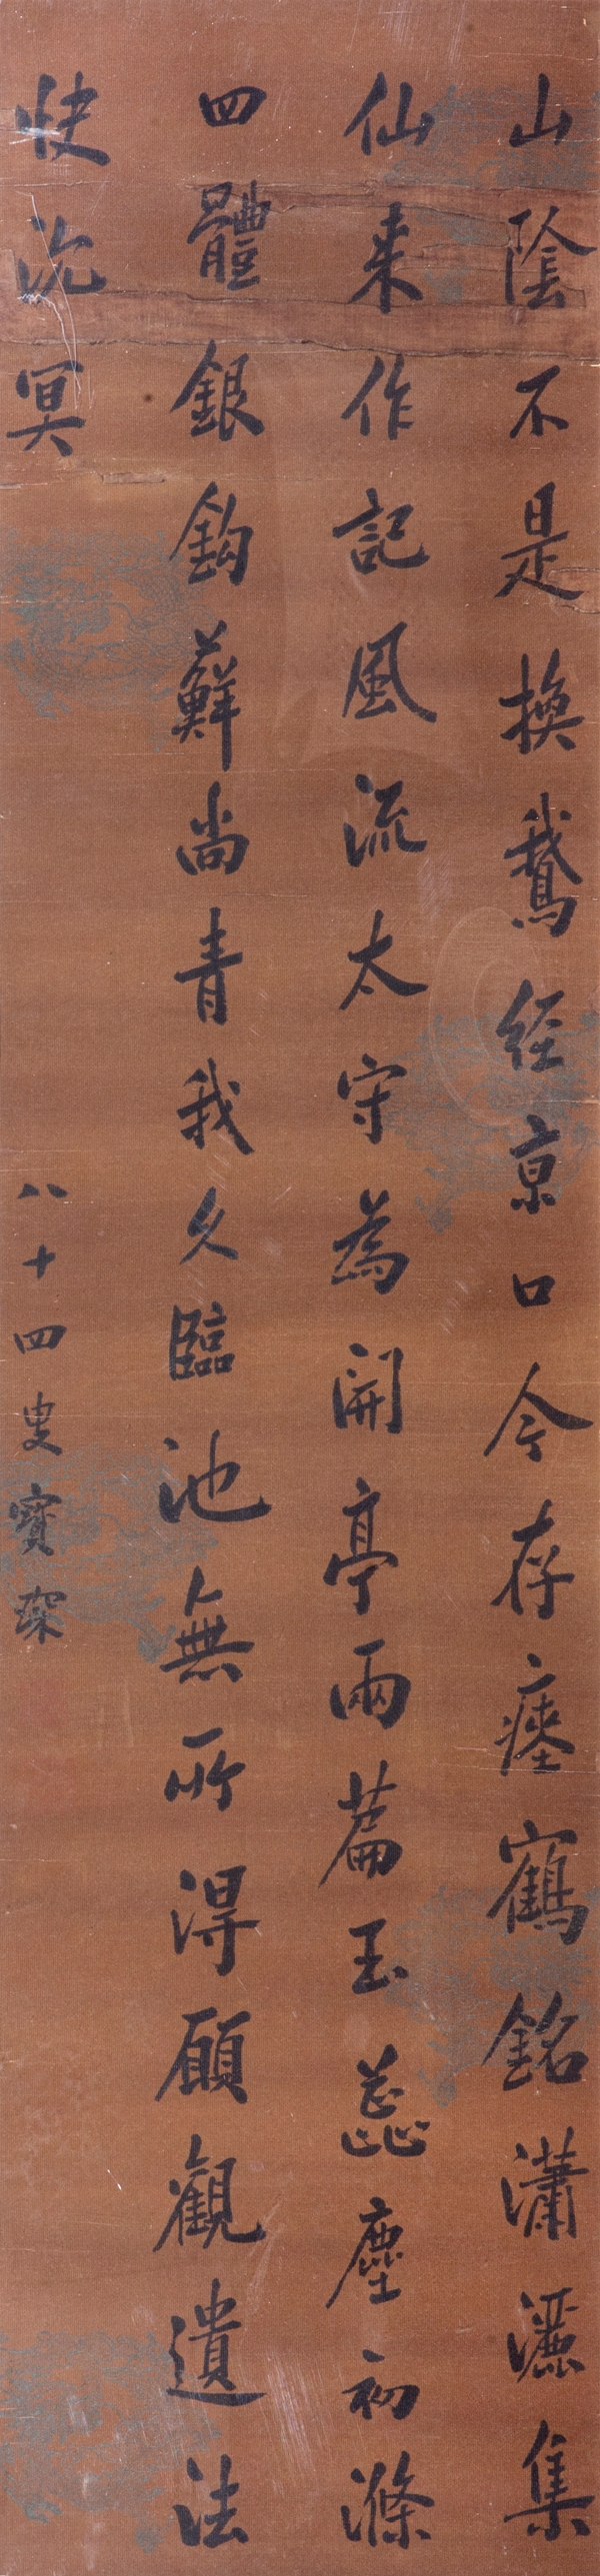 山陰不是換鵞經京口今存瘞鶴銘瀟灑集
仙來作記風流太守為開亭兩篇玉蕊塵初滌
四體銀鉤蘚尚青我久臨池無所得願觀遺法
快沈冥
八十四叟寶琛